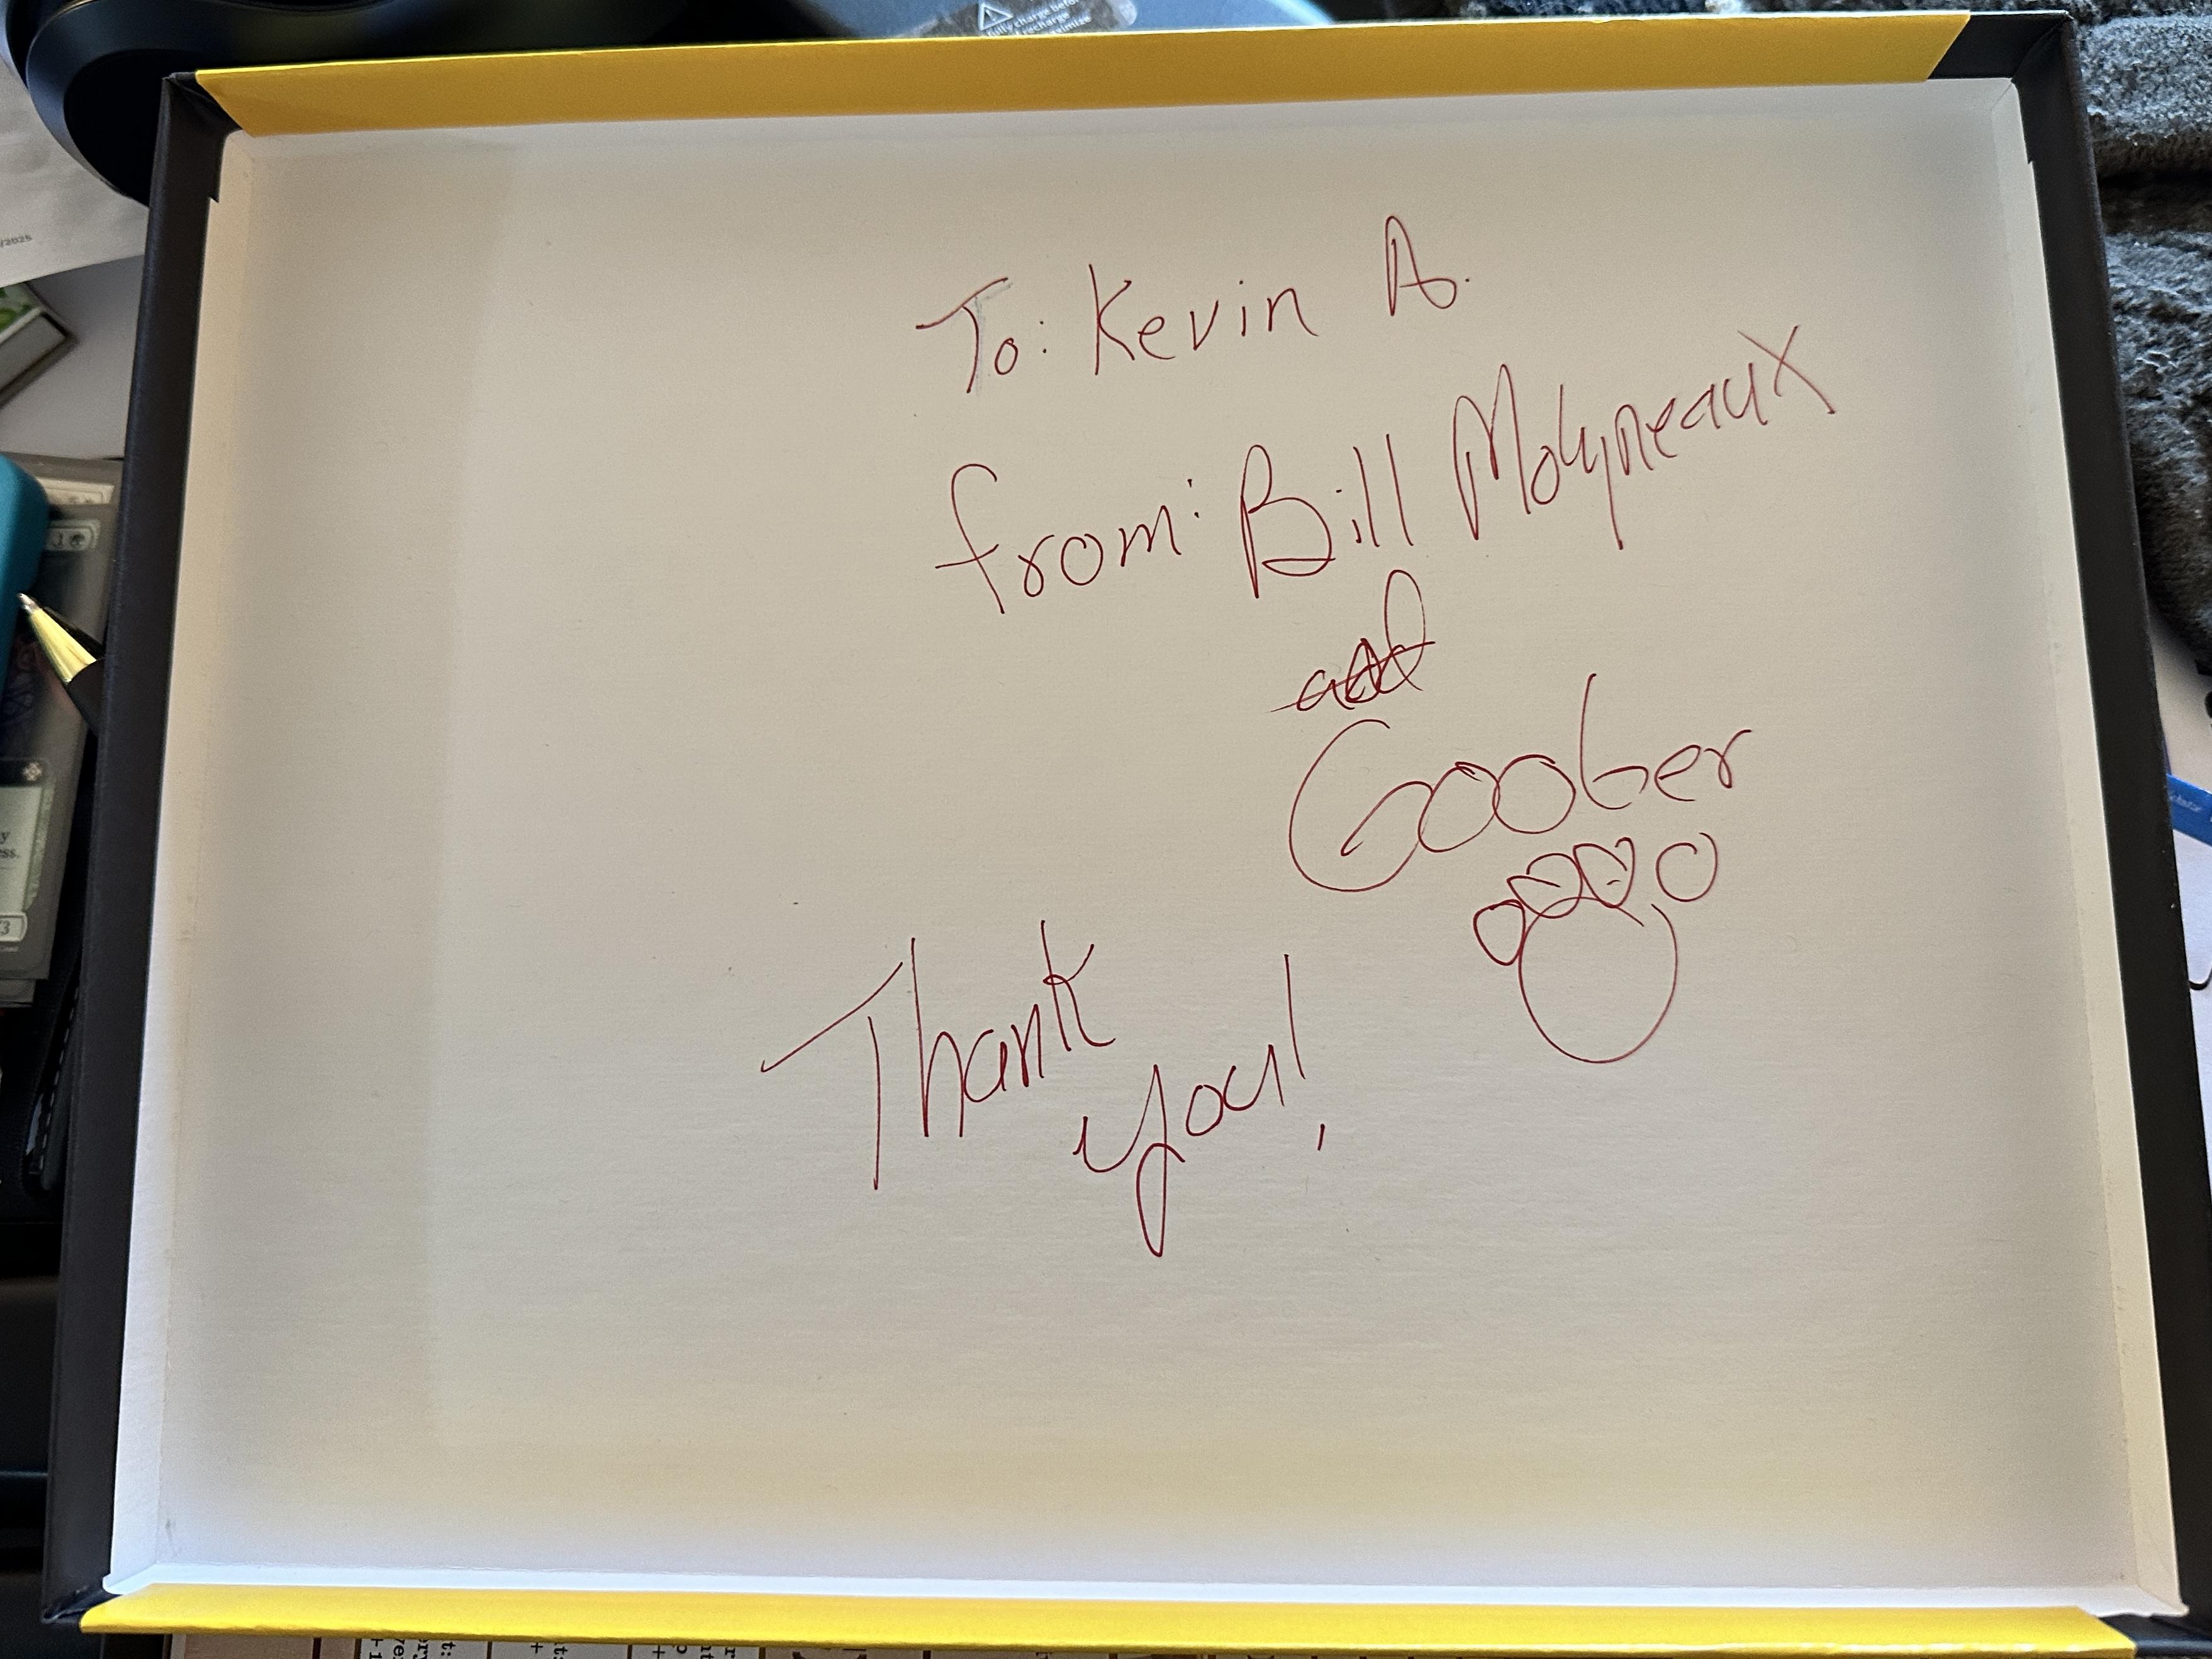 To: Kevin A.
from: Bill Molyneaux
and
Goober
Thank
you!